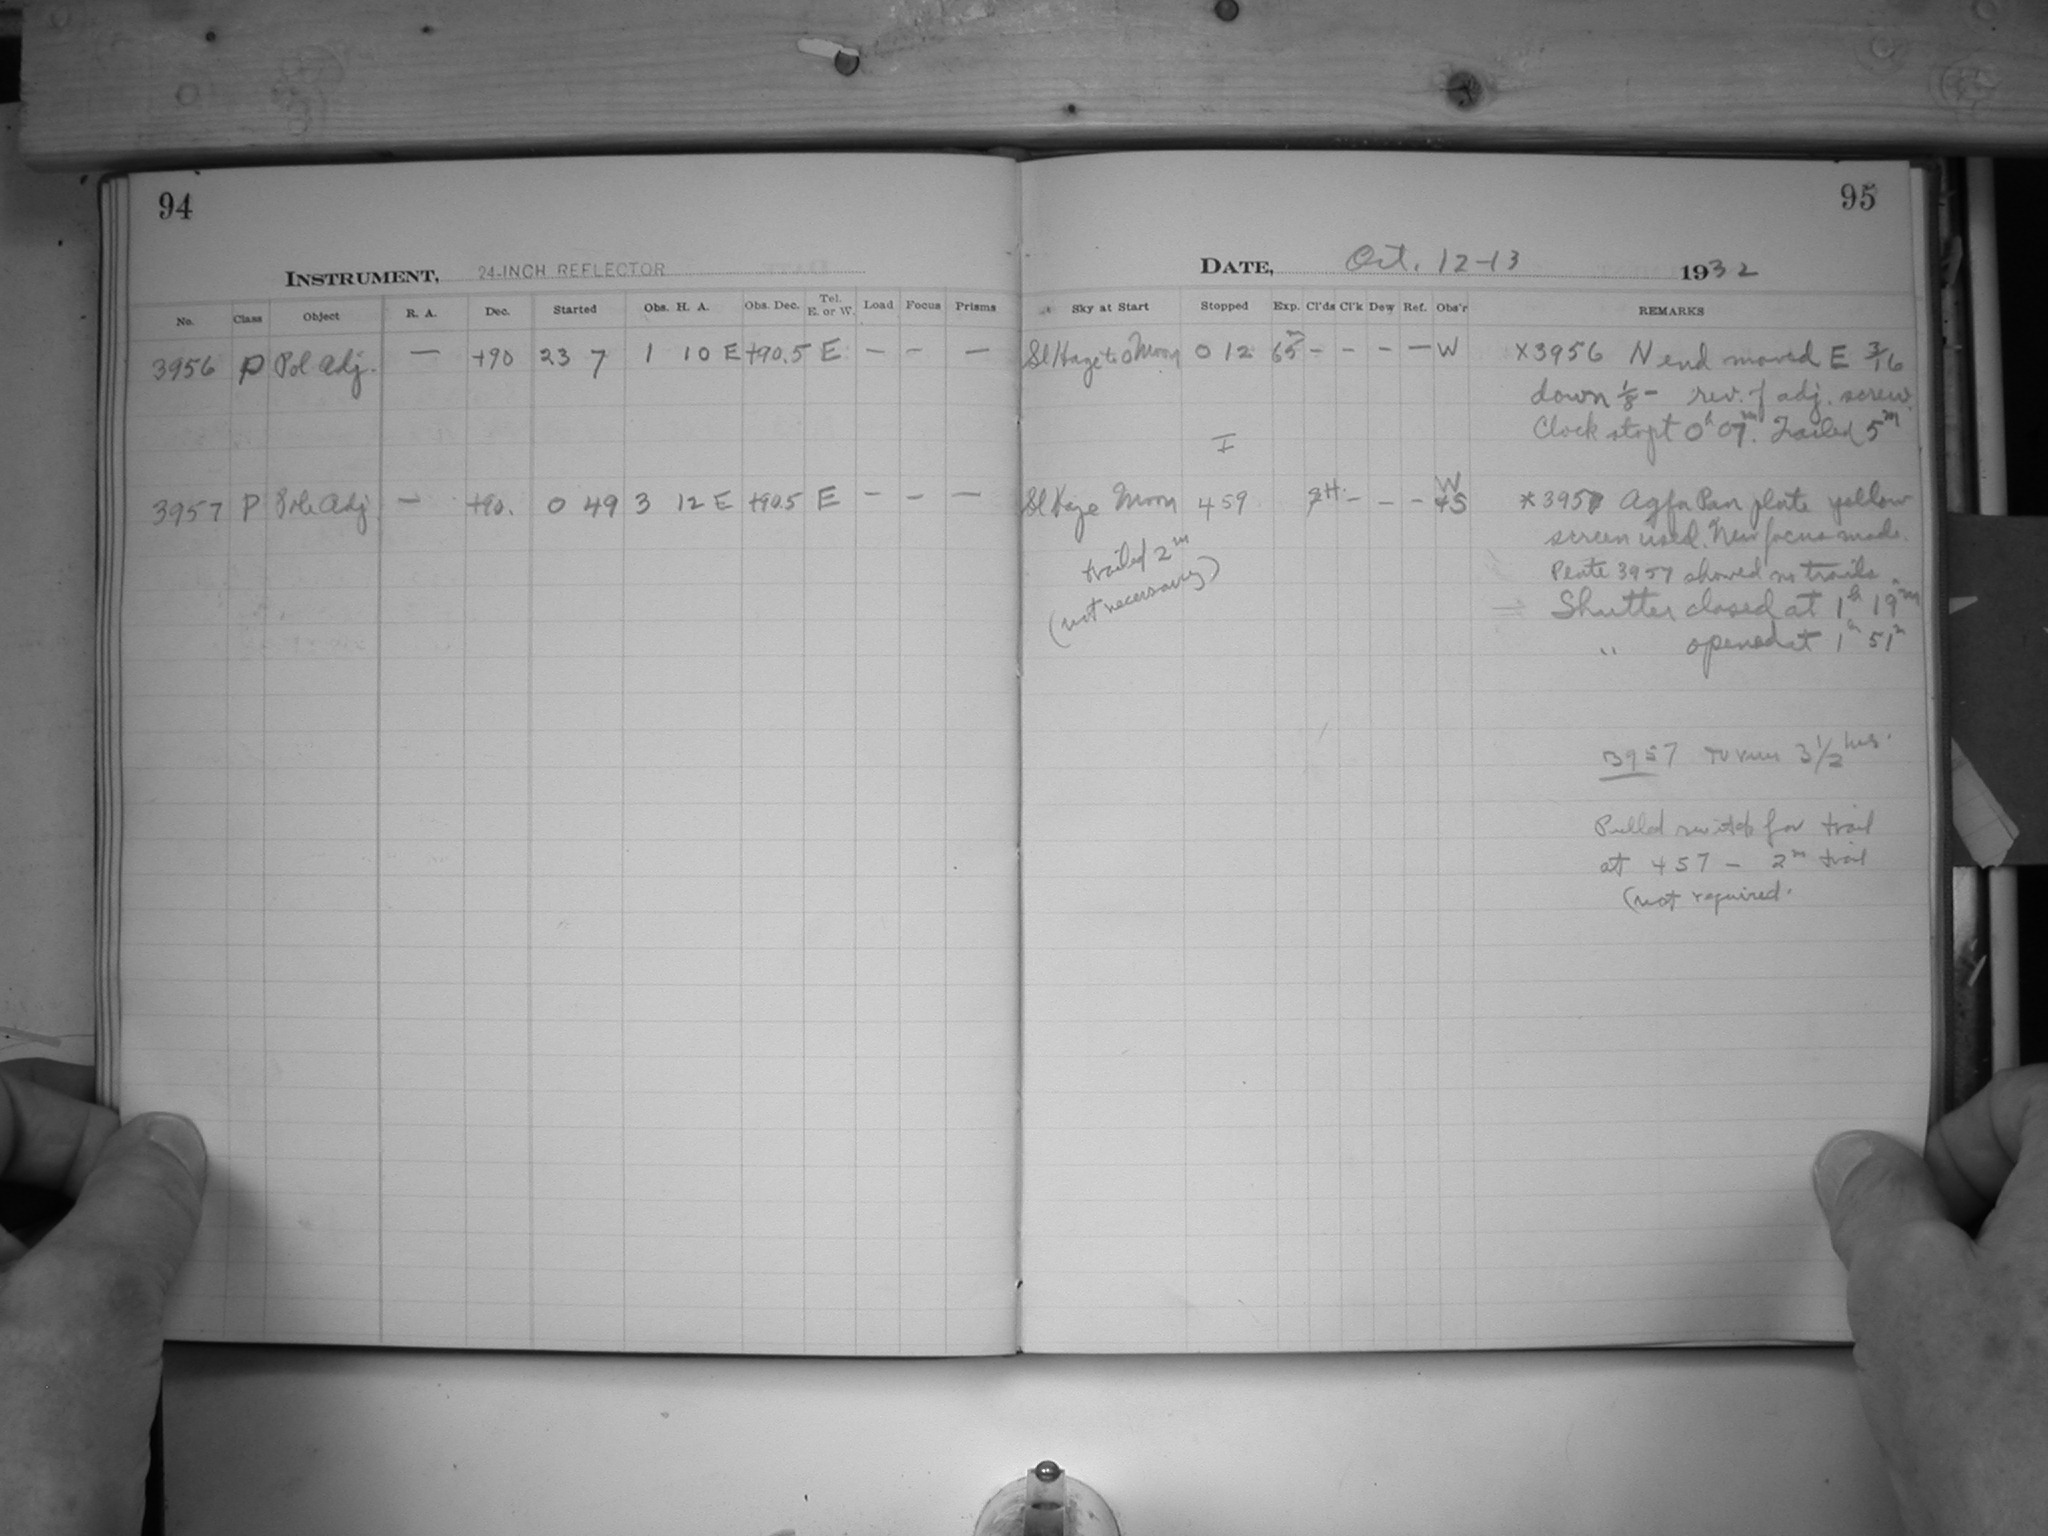 94
INSTRUMENT, 24-INCH REFLECTOR
No. Class Object R. A. Dec. Started Obs. H. A. Obs. Dec. Tel. E. or W. Load Focus Prisms
3956 P Pol Adj. — +90 23 7 1 10 E +90.5 E — — —
3957 P Pole Adj — +90. 0 49 3 12 E +90.5 E — — —
95
DATE, Oct. 12-13 1932
Sky at Start Stopped Exp. Cl'ds Cl'k Dew Ref. Obs'r REMARKS
Sl Haze to Moon 0 12 65m — — — — W X3956 N end moved E 3/16
down 1/8 — rev. of adj. screw.
Clock stopt 0h 07m. Trailed 5m
I
Sl Haze Moon 4 59 H — — — W
+S
*3957 Agfa Pan plate yellow
screen used. New focus made.
Plate 3957 showed no trails.
trailed 2m
(not necessary)
Shutter closed at 1h 19m
" opened at 1h 51m
3957 to run 3 1/2 hrs.
Pulled switch for trail
at 4 57 — 2m trail
(not required.